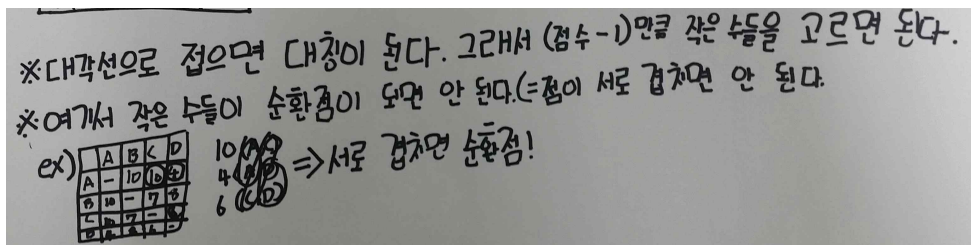 ※대각선으로 접으면 대칭이 된다. 그래서 (점수-1)만큼 작은 수들을 고르면 된다.
※여기서 작은 수들이 순환점이 되면 안 된다.(=점이 서로 겹치면 안 된다.
ex)
A B C D
A - 10 10 4
B 10 - 7 8
C 10 7 -
D
10
4
6 C D
⇒서로 겹치면 순환점!